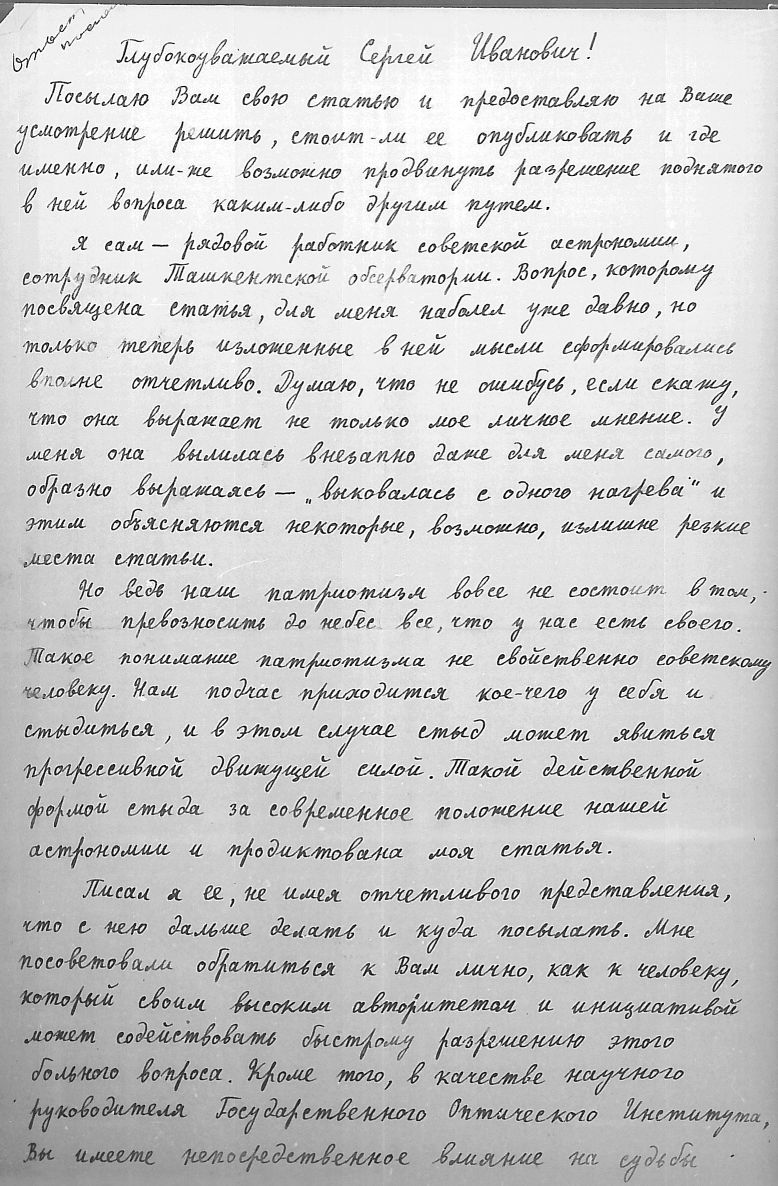 Ответ
Глубокоуважаемый Сергей Иванович!
Посылаю Вам свою статью и предоставляю на Ваше
усмотрение решить, стоит-ли ее опубликовать и где
именно, или-же возможно продвинуть разрешение поднятого
в ней вопроса каким-либо другим путем.
Я сам — рядовой работник советской астрономии,
сотрудник Ташкентской обсерватории. Вопрос, которому
посвящена статья, для меня наболел уже давно, но
только теперь изложенные в ней мысли сформировались
вполне отчетливо. Думаю, что не ошибусь, если скажу,
что она выражает не только мое личное мнение. У
меня она вылилась внезапно даже для меня самого,
образно выражаясь — „выковалась с одного нагрева" и
этим объясняются некоторые, возможно, излишне резкие
места статьи.
Но ведь наш патриотизм вовсе не состоит в том,
чтобы превозносить до небес все, что у нас есть своего.
Такое понимание патриотизма не свойственно советскому
человеку. Нам подчас приходится кое-чего у себя и
стыдиться, и в этом случае стыд может явиться
прогрессивной движущей силой. Такой действенной
формой стыда за современное положение нашей
астрономии и продиктована моя статья.
Писал я ее, не имея отчетливого представления,
что с нею дальше делать и куда посылать. Мне
посоветовали обратиться к Вам лично, как к человеку,
который своим высоким авторитетом и инициативой
может содействовать быстрому разрешению этого
больного вопроса. Кроме того, в качестве научного
руководителя Государственного Оптического Института,
Вы имеете непосредственное влияние на судьбы